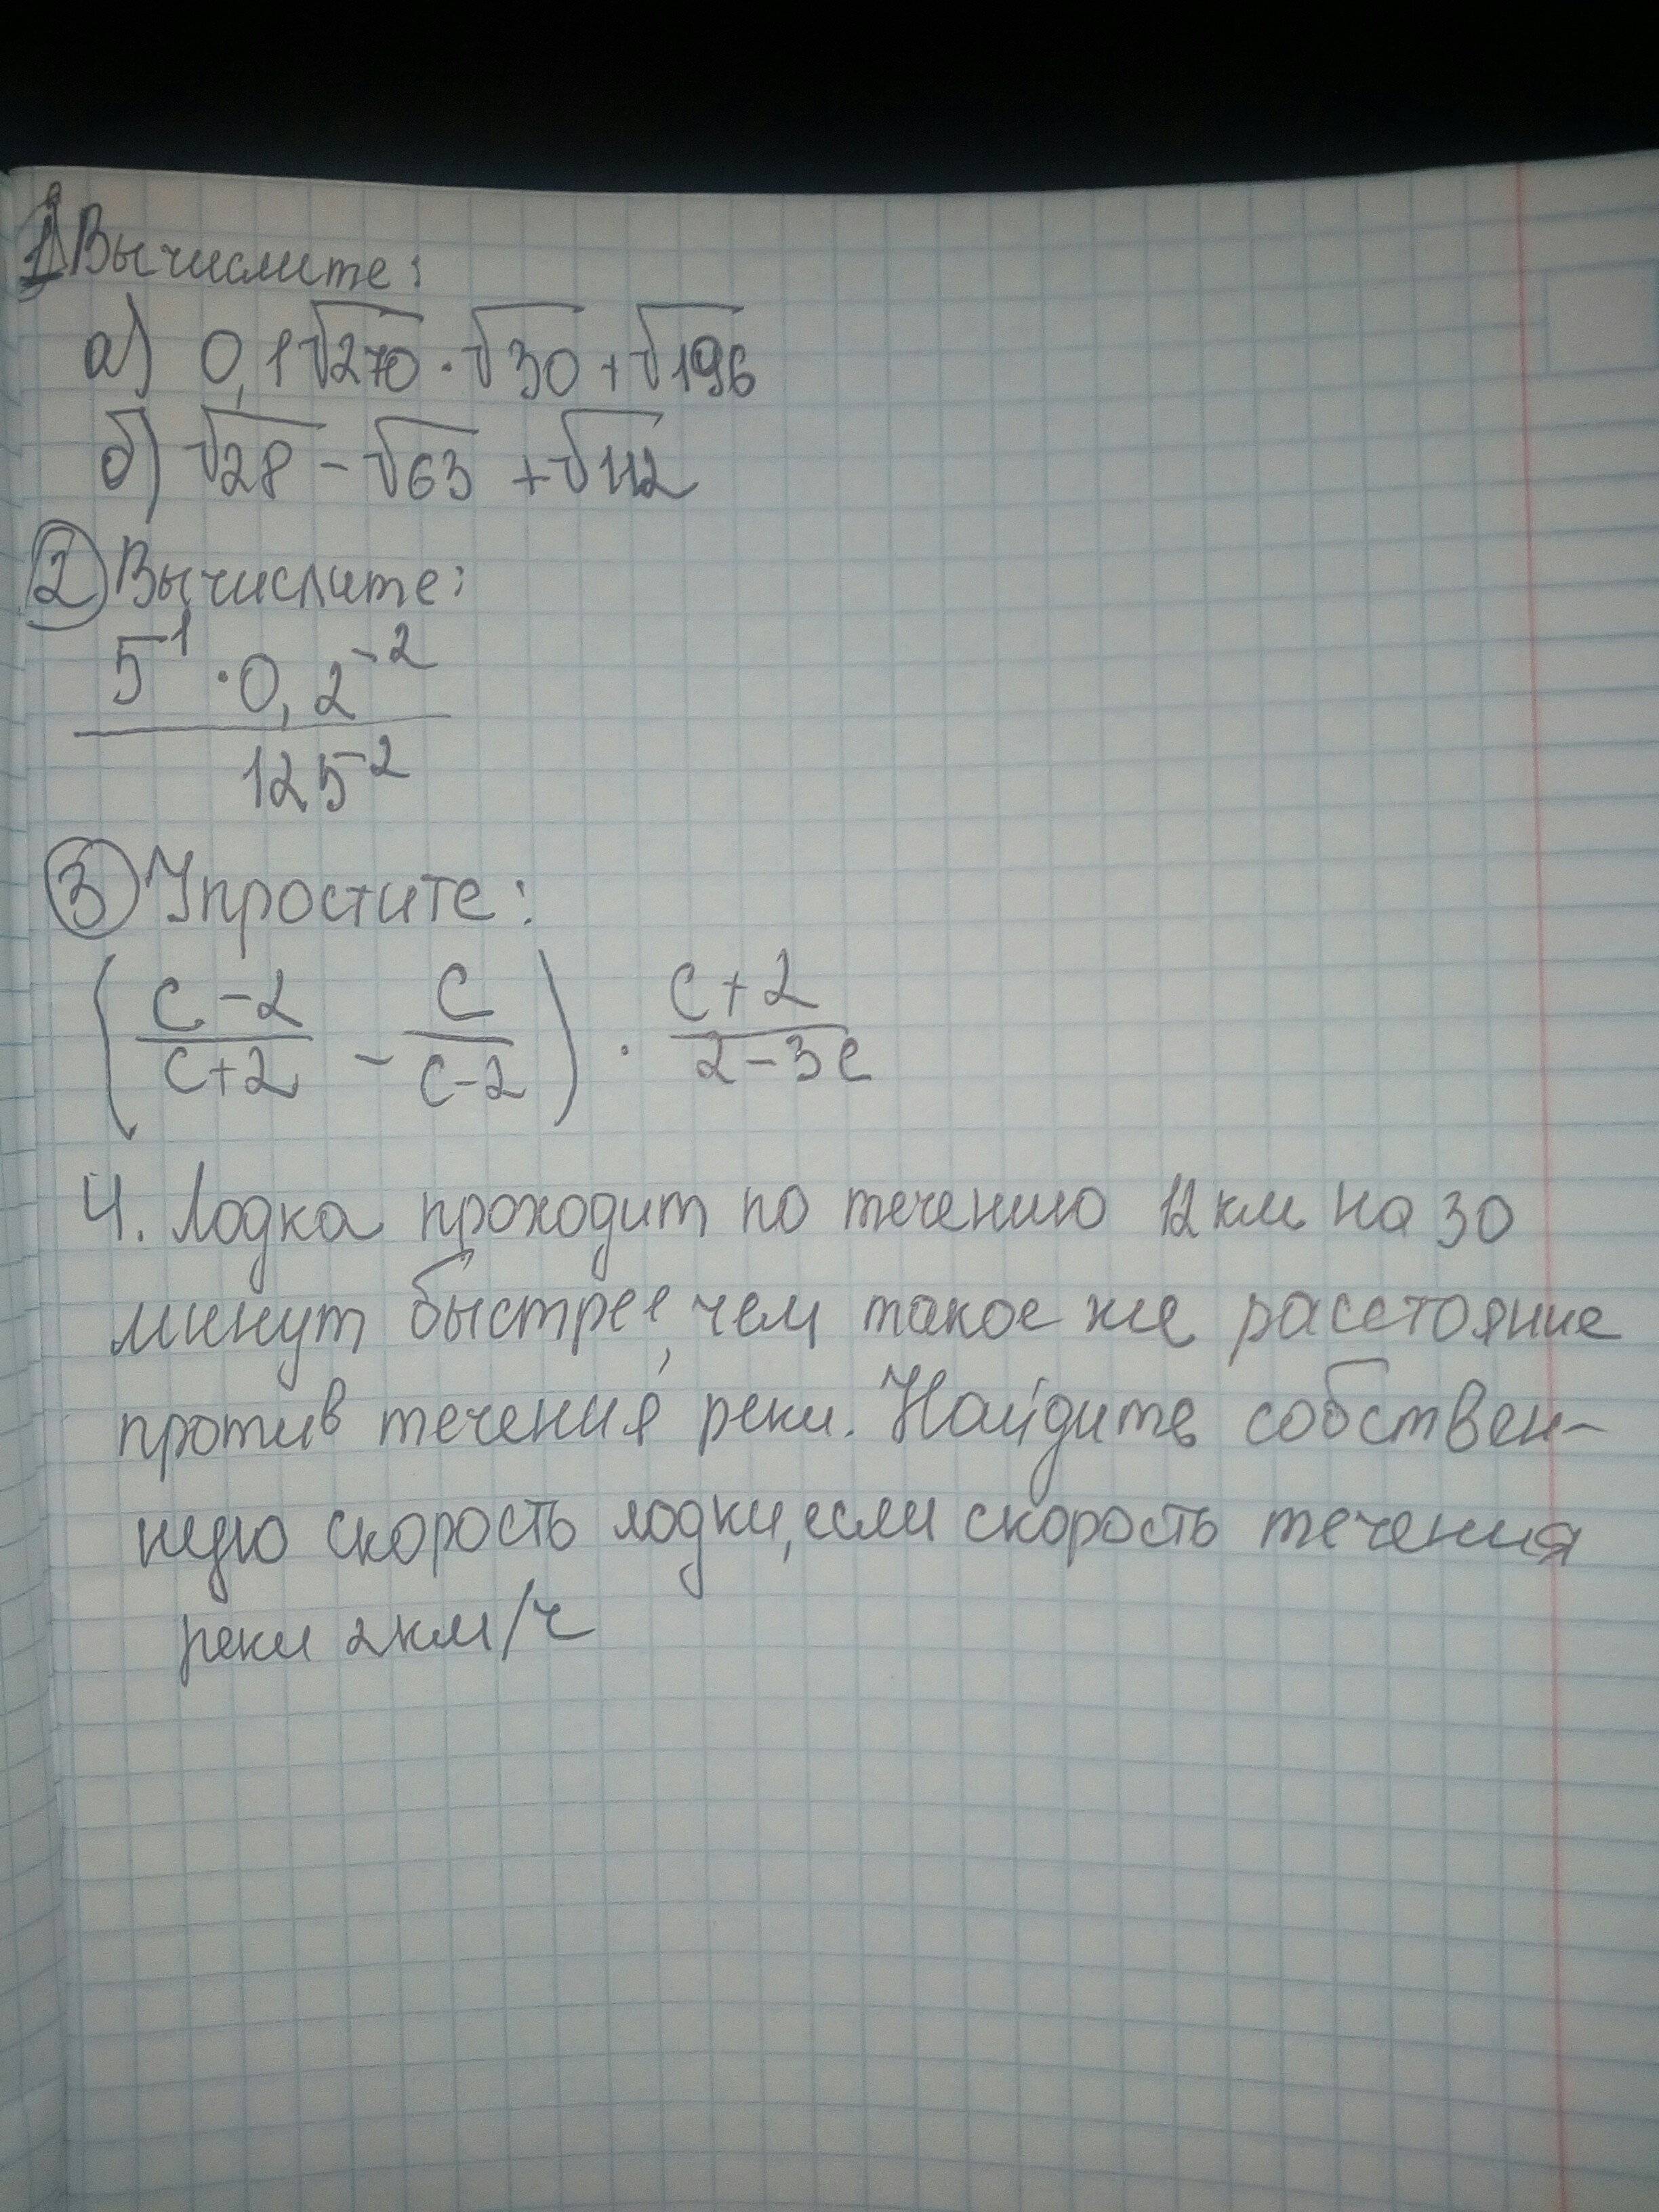 1 Вычислите:
а) 0,1√270 · √30 + √196
б) √28 - √63 + √112
2 Вычислите:
5⁻¹ · 0,2⁻²
125⁻²
3 Упростите:
(c-2/c+2 - c/c-2) · c+2/2-3c
4. Лодка проходит по течению 12 км на 30
минут быстрее, чем такое же расстояние
против течения реки. Найдите собствен-
ную скорость лодки, если скорость течения
реки 2 км/ч